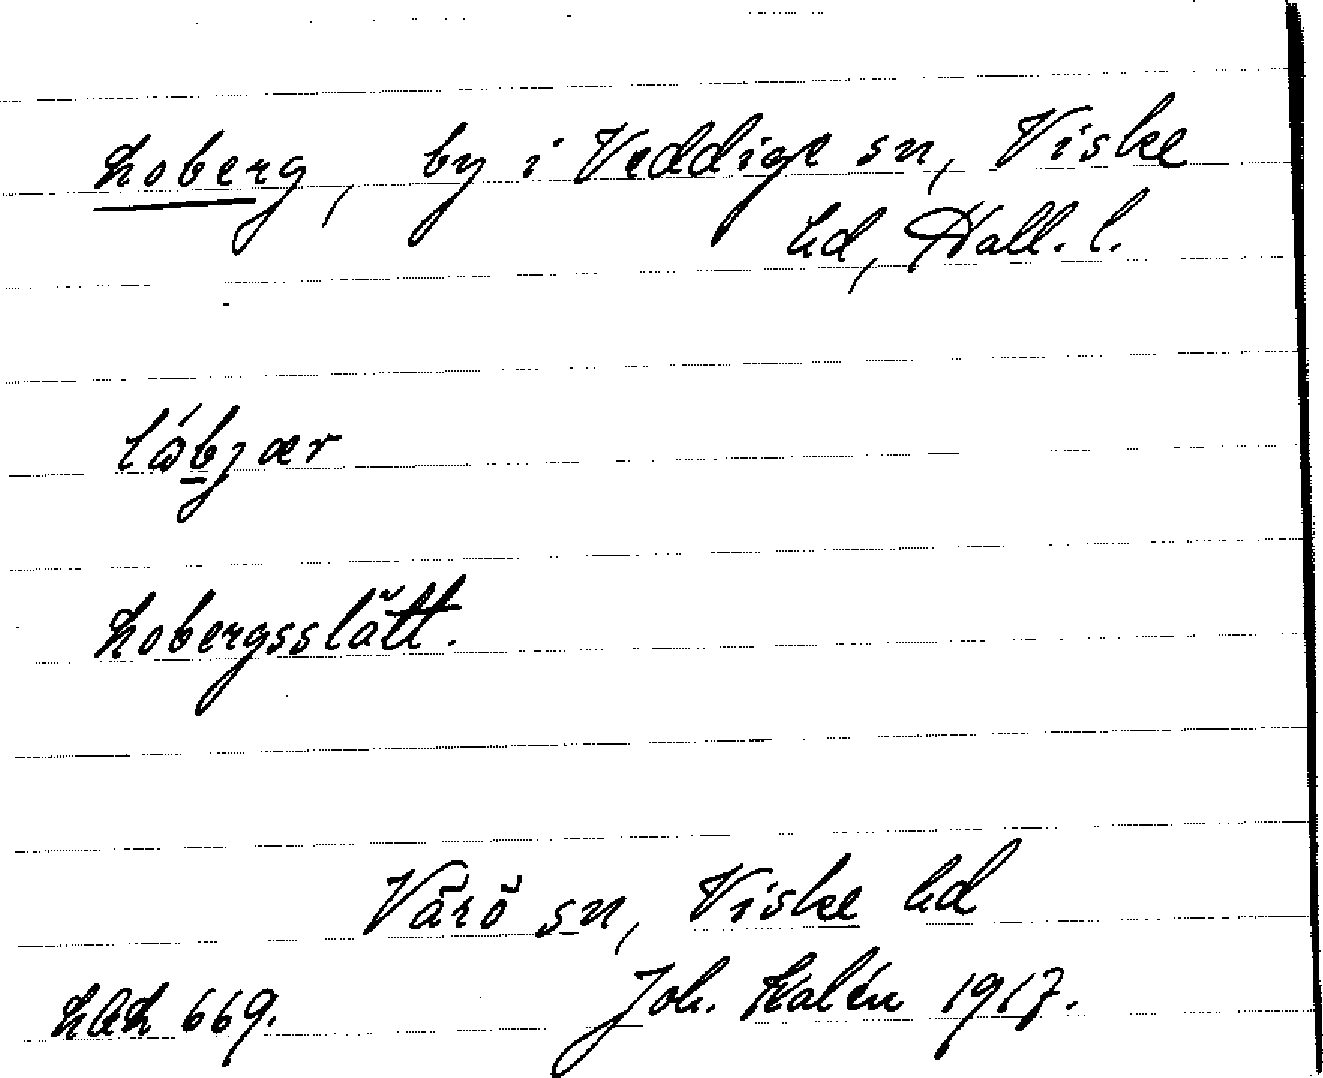 Loberg, by i Veddige sn, Viske
hd, Hall. l.
lábjær
Lobergsslätt.
Värö sn, Viske hd
669. Joh. Kalén 1917.